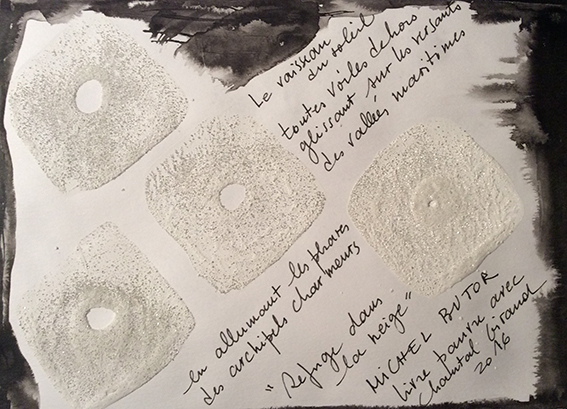 Le vaisseau
du soleil
toutes voiles dehors
glissant sur les versants
des vallées maritimes
en allumant les phares
des archipels charmeurs
"Refuge dans
la neige"
MICHEL BUTOR
livre pauvre avec
Chantal Giraud
2016